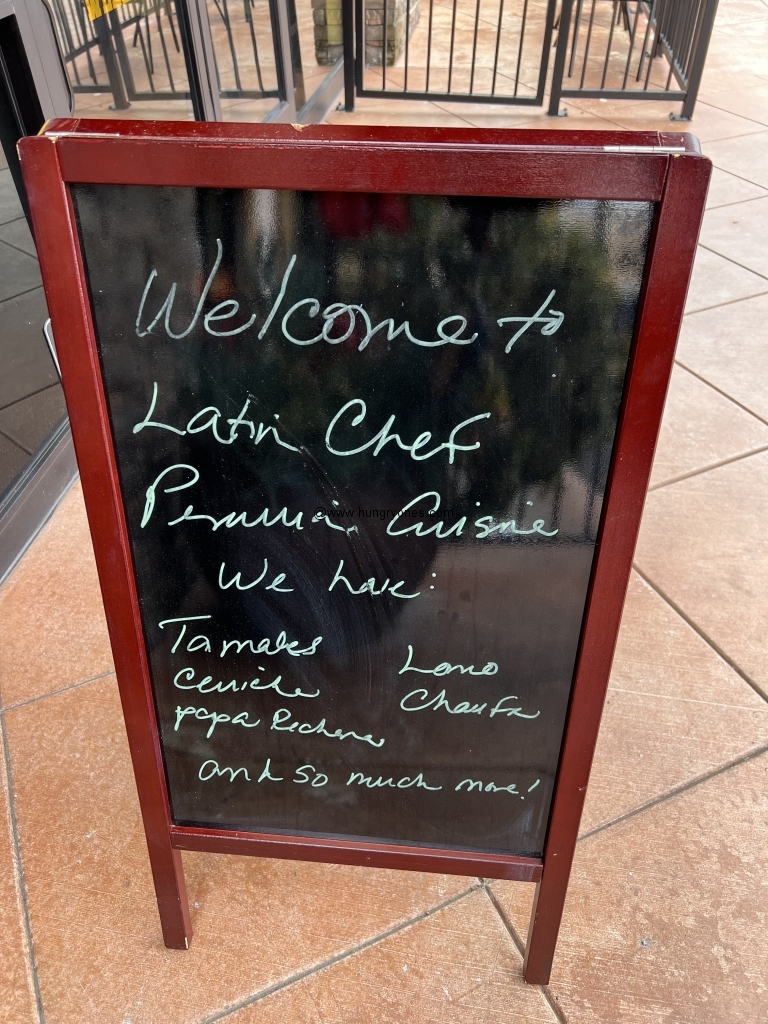 Welcome to
Latin Chef
Peruvian Cuisine
@www.hungryones.com
We have:
Tamales
Ceviche
papa Rellena
Lomo
Chaufa
and so much more!